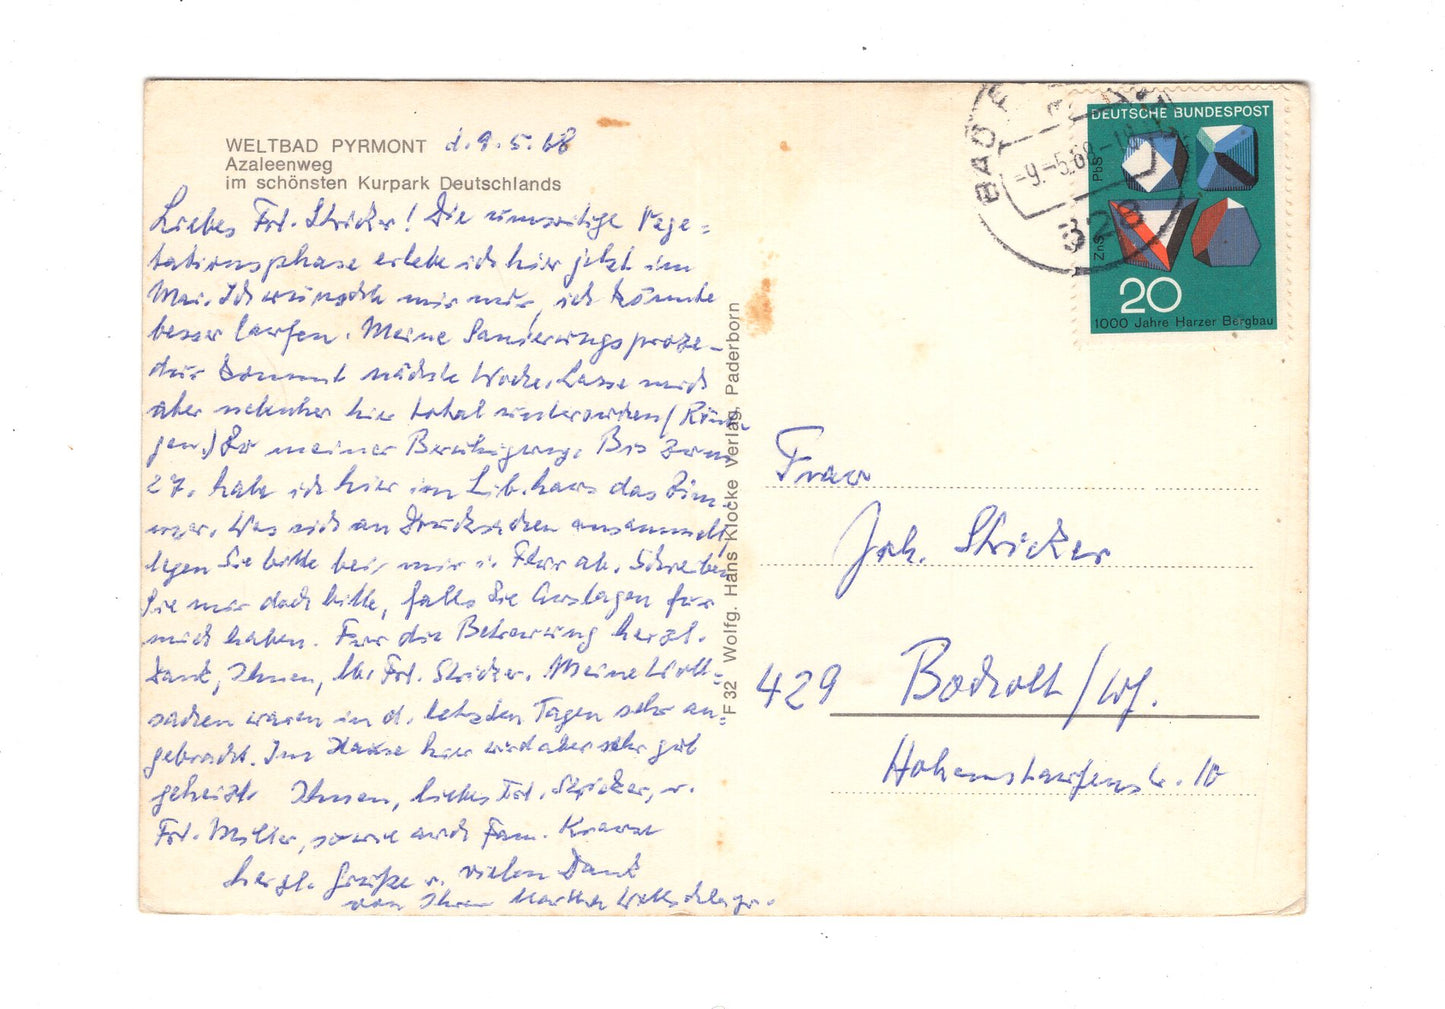 WELTBAD PYRMONT d. 9.5.68
Azaleenweg
im schönsten Kurpark Deutschlands
Liebes Frl. Stricker! Die umseitige Vege=
tationsphase erlebe ich hier jetzt im
Mai. Ich wünschte mir nur, ich könnte
besser laufen. Meine Sanierungsproze-
dur kommt nächste Woche. Lasse mich
aber nebenher hier total untersuchen (Rönt-
gen.) Zu meiner Beruhigung. Bis zum
27. habe ich hier im Lib.haus das Zim-
mer. Was sich an Drucksachen ansammelt,
legen Sie bitte bei mir i. Flur ab. Schreiben
Sie mir doch bitte, falls Sie Auslagen für
mich haben. Für die Betreuung herzl.
Dank, Ihnen, lb. Frl. Stricker. Meine Woll=
sachen waren in d. letzten Tagen sehr an=
gebracht. Im Hause hier wird aber sehr gut
geheizt. Ihnen, liebes Frl. Stricker, u.
Frl. Miller, sowie auch Fam.
herzl. Grüße u. vielen Dank
von Ihrer Martha
F 32 Wolfg. Hans Klocke Verlag, Paderborn
BAD
-9.-5.68-
328
DEUTSCHE BUNDESPOST
PbS
ZnS
20
1000 Jahre Harzer Bergbau
Frau
Joh. Stricker
429 Bocholt / Wf.
Hohenstaufenstr. 10